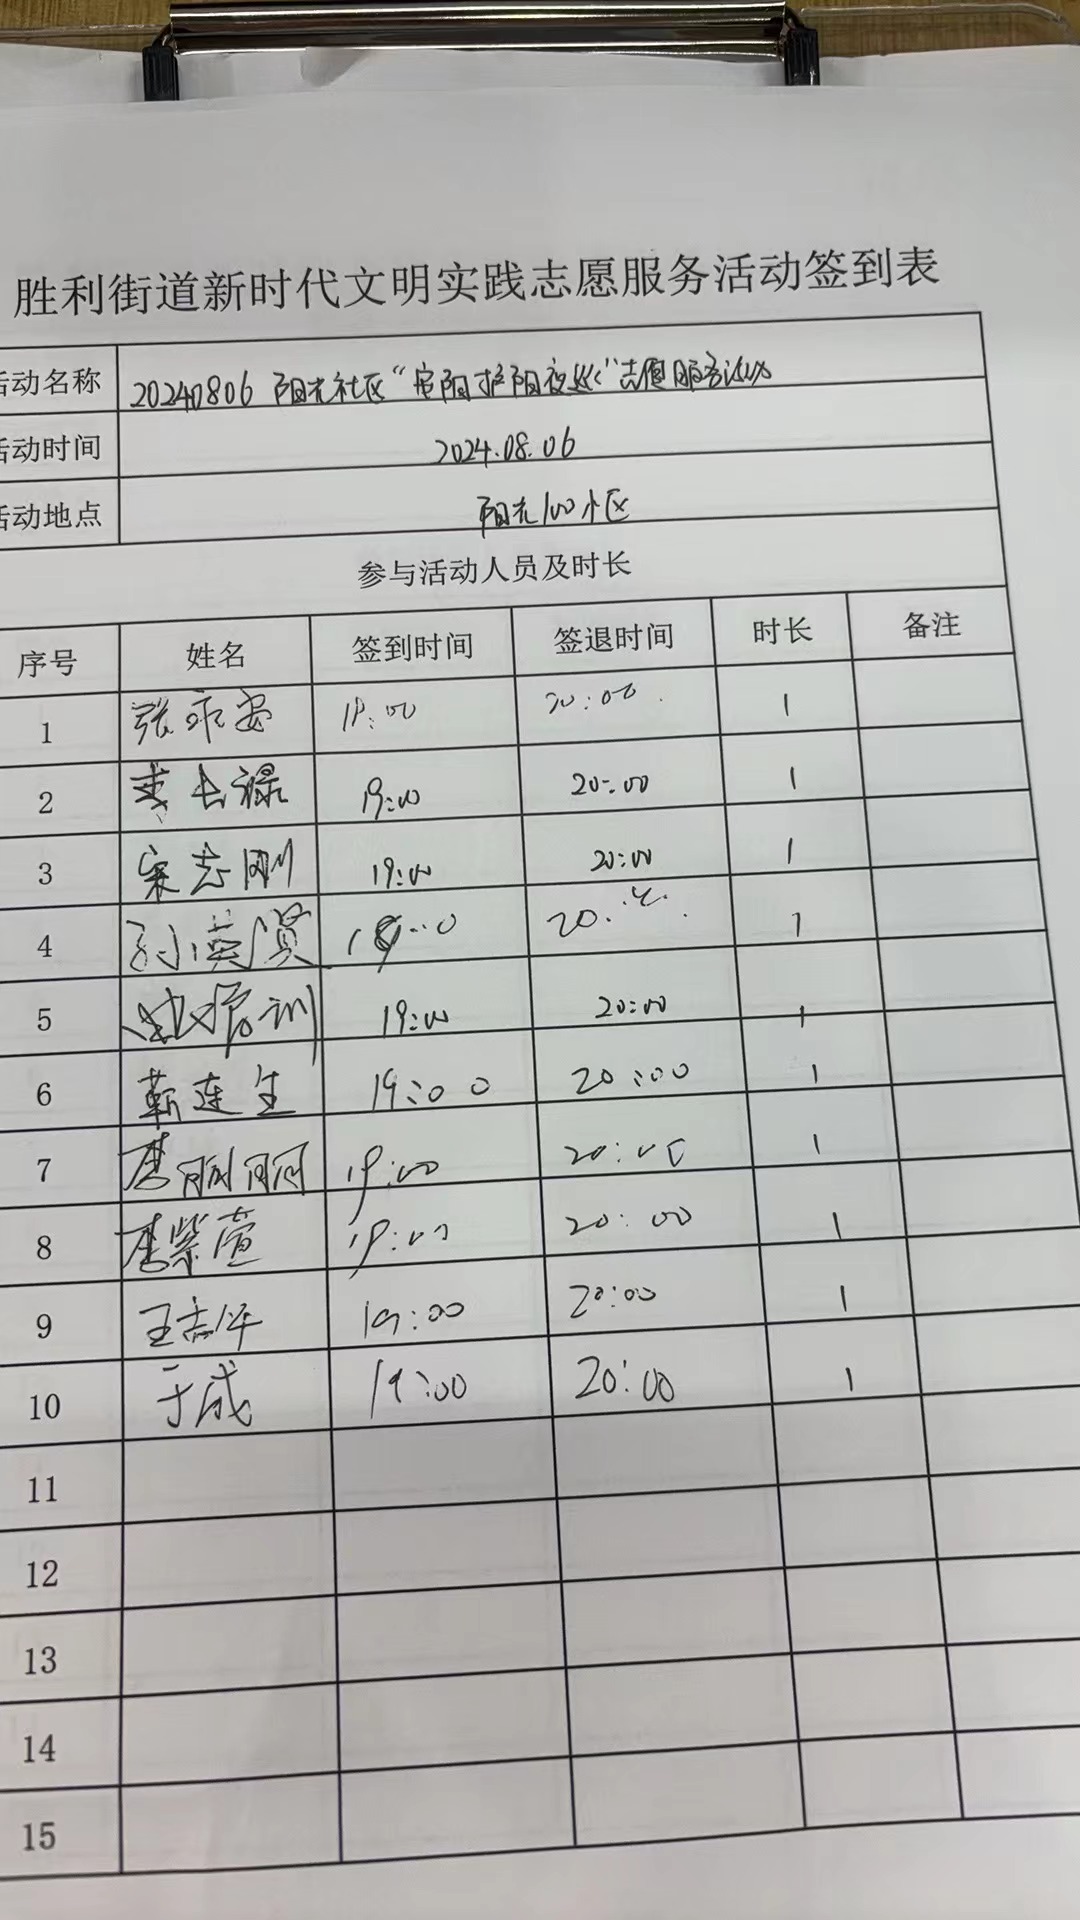 胜利街道新时代文明实践志愿服务活动签到表
活动名称 20240806 阳光社区“ 阳护阳夜巡”志愿服务活动
活动时间 2024.08.06
活动地点 阳光100小区
参与活动人员及时长
序号 姓名 签到时间 签退时间 时长 备注
1 张承安 19:00 20:00 1
2 李长禄 19:00 20:00 1
3 宋志刚 19:00 20:00 1
4 孙英贤 19:00 20:00 1
5 培训 19:00 20:00 1
6 靳连生 19:00 20:00 1
7 李丽丽 19:00 20:00 1
8 李紫萱 19:00 20:00 1
9 王志华 19:00 20:00 1
10 于成 19:00 20:00 1
11
12
13
14
15